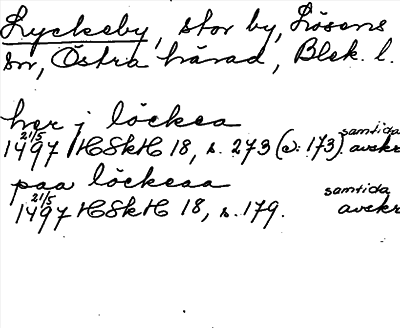 Lyckeby, stor by, Lösens
sn, Östra härad, Blek. l.
her j löckea
1497 21/5 HSkH 18, s. 273 (o: 173). samtida avskr
paa löckeaa
1497 21/5 HSkH 18, s. 179. samtida avskr